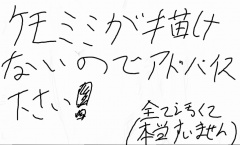 ケモミミが描け
ないのでアドバイス
下さい!
全て汚くて
(本当すいません)